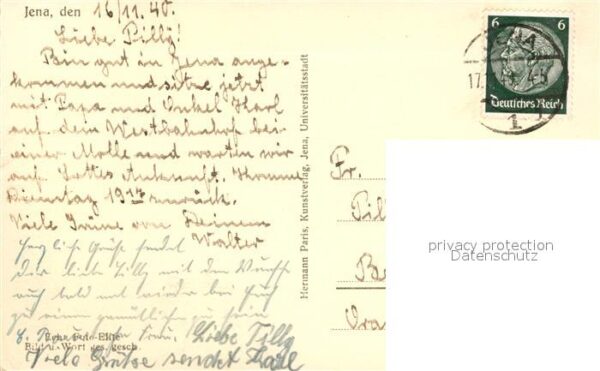 Jena, den 16/11.40.
Liebe Tilly!
Bin gut in Jena ange-
kommen und sitze jetzt
mit Papa und Onkel Karl
auf dem Westbahnhof bei
einer Molle und warten wir
auf Ankunft. Komme
Dienstag 19 zurück.
Viele Grüsse von Deinem
Walter
Herzliche Grüße sendet
Dir liebe Tilly mit dem Wunsche
auch bald mal wieder bei Euch
zu einem gemütlichen zu sein
Frau.
Liebe Tilly
Viele Grüße sendet Karl
Echte Foto-Ekte
Bild u. Wort ges. gesch.
Hermann Paris, Kunstverlag, Jena, Universitätsstadt
6 6
Deutsches Reich
JENA
17.
1
Fr.
Til
Be
Ora
privacy protection
Datenschutz